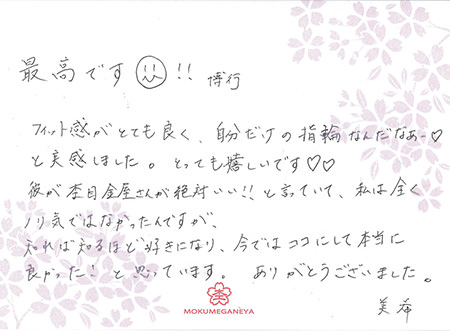 最高です!! 博行
フィット感がとても良く、自分だけの指輪なんだなあー♡
と実感しました。とっても嬉しいです♡♡
彼が杢目金屋さんが絶対いい!!と言っていて、私は全く
ノリ気ではなかったんですが、
知れば知るほど好きになり、今ではココにして本当に
良かった!と思っています。ありがとうございました。
美希
MOKUMEGANEYA